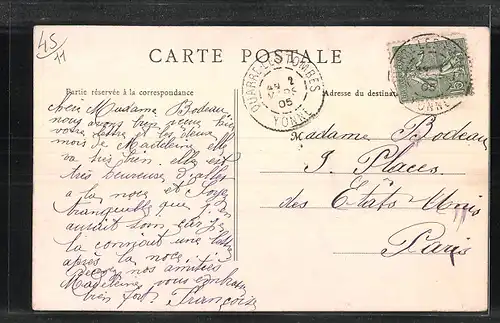 45
11
CARTE POSTALE
Partie réservée à la correspondance
Adresse du destinat
QUARRE-LES-TOMBES
2
05
YONNE
Madame Bodeau
nous avons bien
votre lettre et les deux
mois de Madeleine elle
va très bien. elle est
très heureuse d'aller
a la noce
tranquille que j'en
aurait soin
la convoit une
après la noce
nos amitiés
Madeleine vous embrasse
bien fort Françoise
Madame Bodeau
Places
des États Unis
Paris